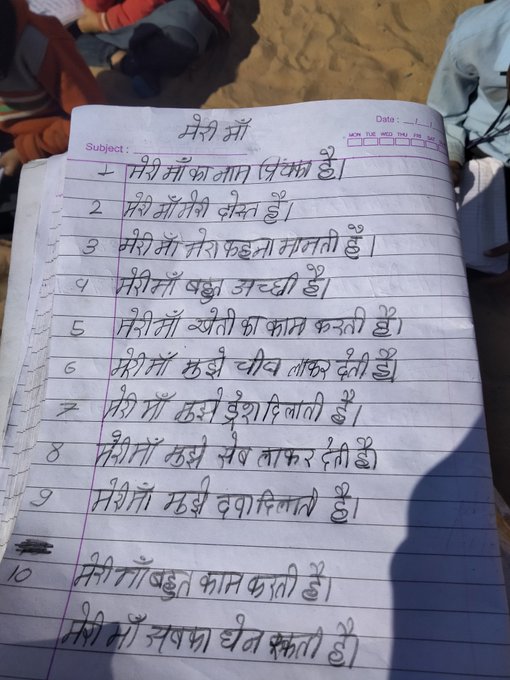 मेरी माँ
Date : __/__/
MON TUE WED THU FRI SAT
Subject :
1 मेरी माँ का नाम है।
2 मेरी माँ मेरी दोस्त है।
3 मेरी माँ मेरा कहना मानती है।
4 मेरी माँ बहुत अच्छी है।
5 मेरी माँ खेती का काम करती है।
6 मेरी माँ मुझे चीज लाकर देती है।
7 मेरी माँ मुझे ड्रेश दिलाती है।
8 मेरी माँ मुझे सेब लाकर देती है।
9 मेरी माँ मुझे दवा दिलाती है।
10 मेरी माँ बहुत काम करती है।
मेरी माँ सबका धेन रकती है।